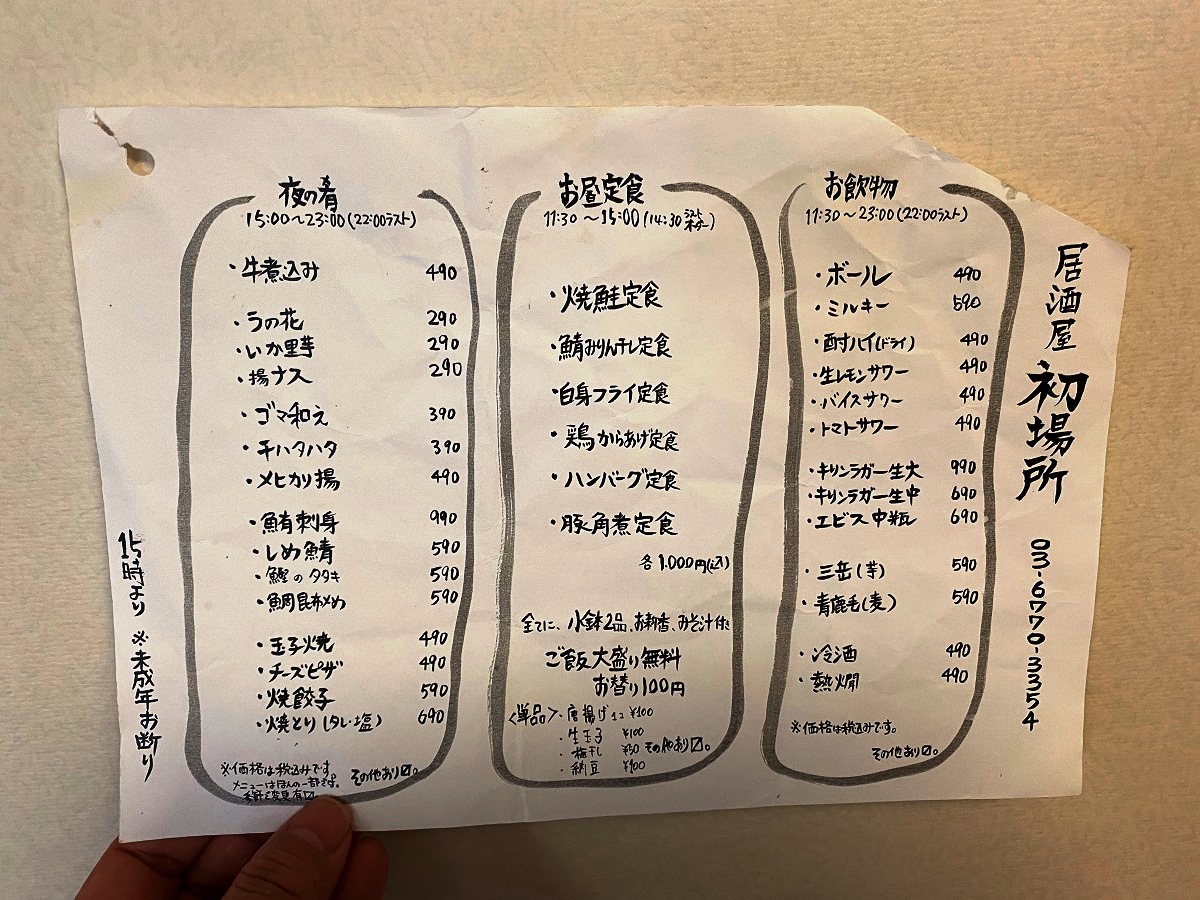 居酒屋 初場所
03-6770-3354
お飲物
11:30～23:00(22:00ラスト)
・ボール 490
・ミルキー 590
・酎ハイ(ドライ) 490
・生レモンサワー 490
・バイスサワー 490
・トマトサワー 490
・キリンラガー生大 990
・キリンラガー生中 690
・エビス中瓶 690
・三岳(芋) 590
・青鹿毛(麦) 590
・冷酒 490
・熱燗 490
※価格は税込みです。
その他あり〼。
お昼定食
11:30～15:00(14:30ラストオーダー)
・焼鮭定食
・鯖みりん干し定食
・白身フライ定食
・鶏からあげ定食
・ハンバーグ定食
・豚角煮定食
各1.000円(込)
全てに、小鉢2品、お新香、みそ汁付
ご飯大盛り無料
お替り100円
<単品>・唐揚げ1コ ¥100
・生玉子 ¥100
・梅干し ¥50 その他あり〼。
・納豆 ¥100
夜の肴
15:00～23:00(22:00ラスト)
・牛煮込み 490
・うの花 290
・いか里芋 290
・揚ナス 290
・ゴマ和え 390
・チハタハタ 390
・メヒカリ揚 490
・鮪刺身 990
・しめ鯖 590
・鰹のタタキ 590
・鯛昆布〆め 590
・玉子焼 490
・チーズピザ 490
・焼餃子 590
・焼とり(タレ・塩) 690
※価格は税込みです。
メニューはほんの一部です。
その他あり〼。
15時より ※未成年お断り